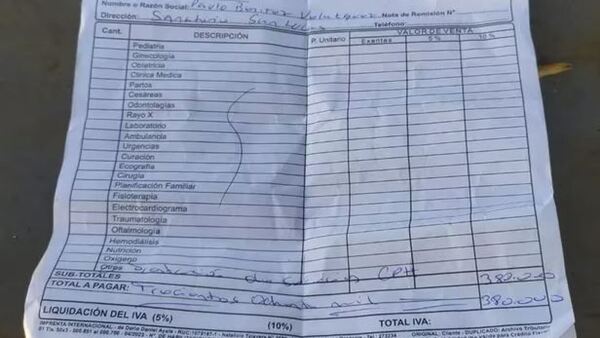 Nombre o Razón Social: Pablo Benitez Nota de Remisión N°
Dirección: Sanatorio San Teléfono:
Cant. DESCRIPCIÓN P. Unitario VALOR DE VENTA
Exentas 5% 10%
Pediatría
Ginecología
Obstetricia
Clínica Medica
Partos
Cesáreas
Odontologías
Rayo X
Laboratorio
Ambulancia
Urgencias
Curación
Ecografía
Cirugía
Planificación Familiar
Fisioterapia
Electrocardiograma
Traumatología
Oftalmología
Hemodiálisis
Nutrición
Oxígeno
Otros
SUB-TOTALES 380.000
TOTAL A PAGAR: Trecientos Ochenta mil 380.000
LIQUIDACIÓN DEL IVA (5%) (10%) TOTAL IVA:
IMPRENTA INTERNACIONAL - de Dario Daniel Ayala - RUC: ORIGINAL: Cliente - DUPLICADO: Archivo Tributario